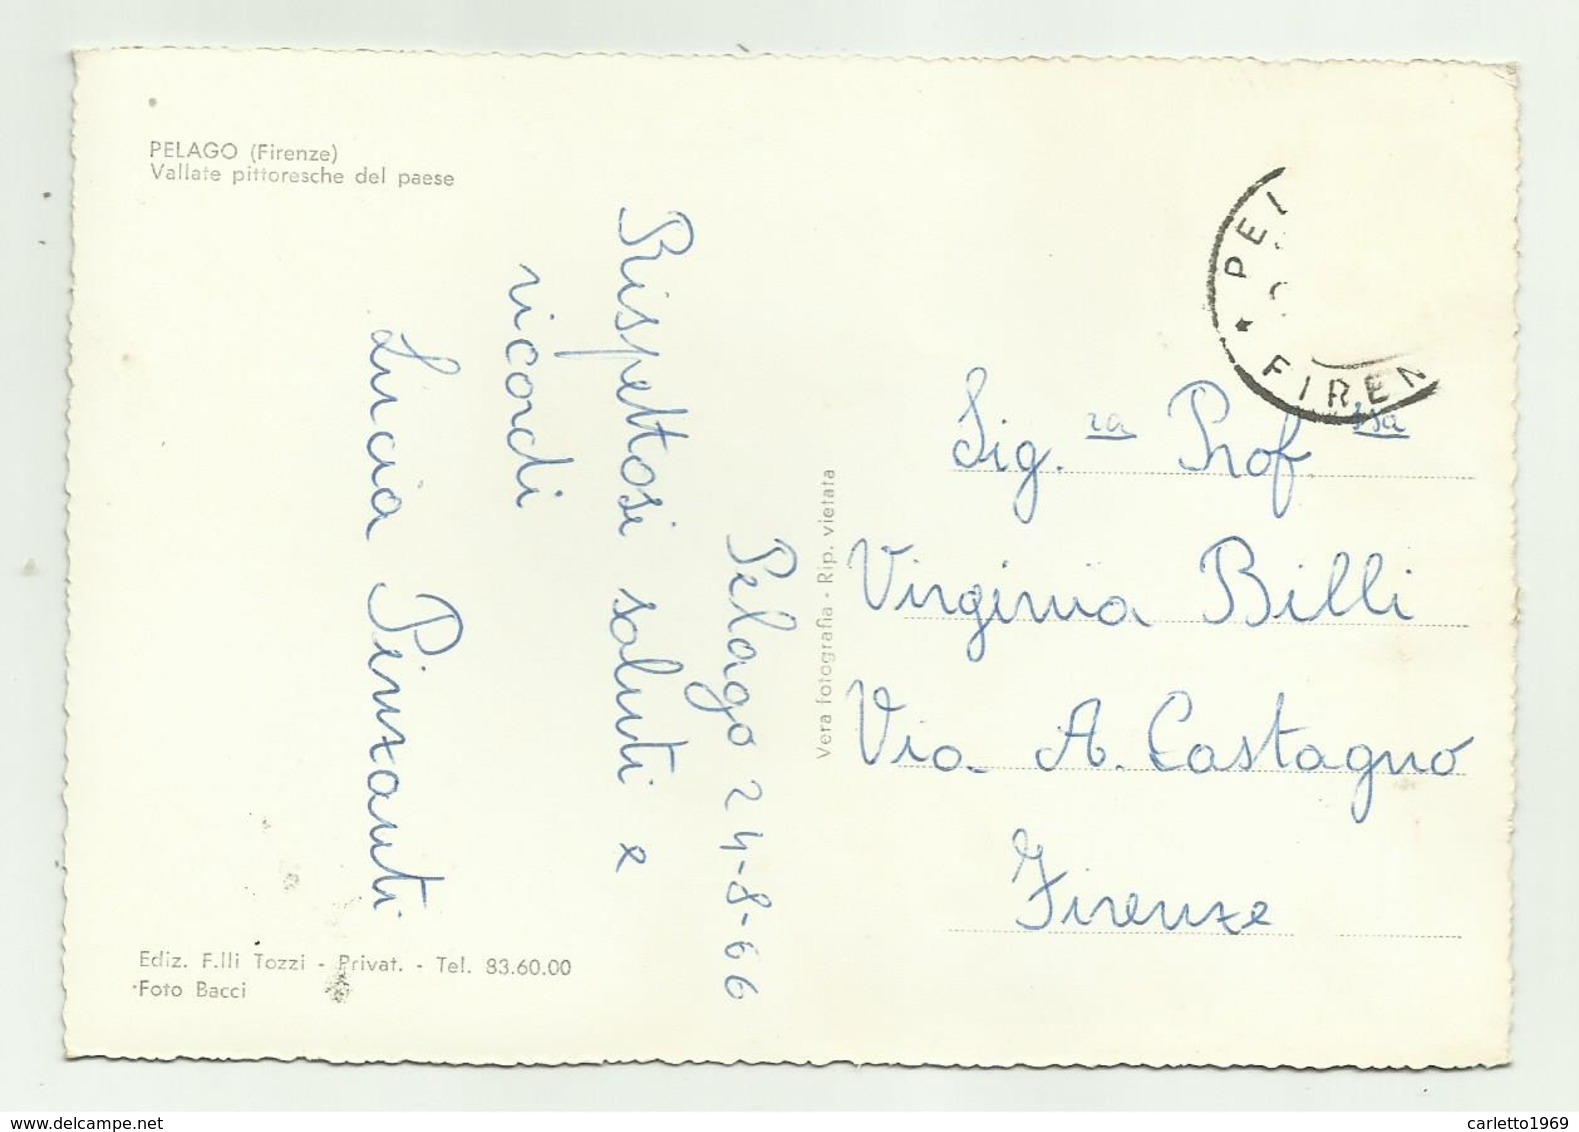 PELAGO (Firenze)
Vallate pittoresche del paese
Pelago 24-8-66
Rispettosi saluti e
ricordi
Lucia Pinzauti
Ediz. F.lli Tozzi - Privat. - Tel. 83.60.00
Foto Bacci
Vera fotografia - Rip. vietata
* PEL
FIREN
Sig.ra Prof.ssa
Virginia Billi
Via A. Castagno
Firenze
delcampe.net
carletto1969